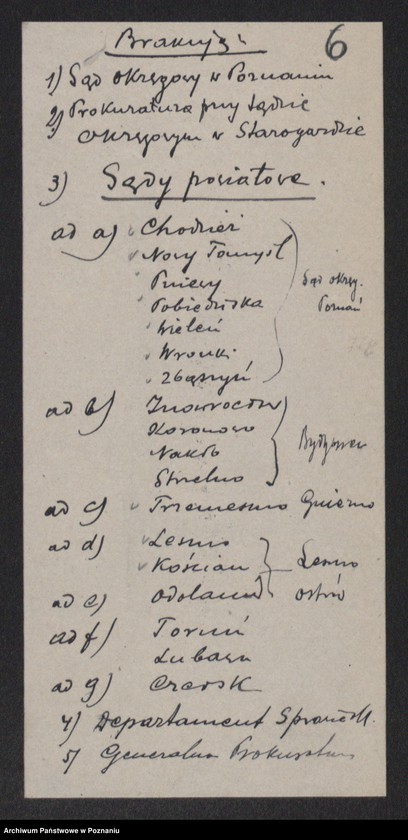 Brakują:
6
1) Sąd Okręgowy w Poznaniu
2) Prokuratura przy Sądzie
Okręgowym w Starogardzie
3) Sądy powiatowe.
ad a) Chodzież
Nowy Tomyśl
Pniewy
Pobiedziska
Wieleń
Wronki
Zbąszyń
Sąd okręg.
Poznań
ad b) Inowrocław
Koronowo
Nakło
Strzelno
Bydgoszcz
ad c) Trzemeszno Gniezno
ad d) Leszno
Kościan
Leszno
ad e) Odolanów Ostrów
ad f) Toruń
Lubawa
ad g) Czersk
4) Departament Sprawiedl.
5) Generalna Prokuratura
Archiwum Państwowe w Poznaniu